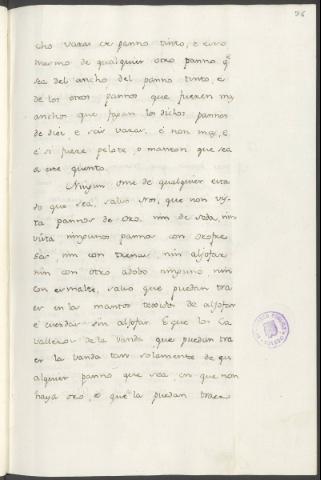 96
cho varas de panno tinto, e esso
mesmo de qualquier otro panno qe
sea del ancho del panno tinto, e
de los otros pannos que fueren mas
anchos que fagan los dichos pannos
de diez e seis varas, é non mas, é
é si fuere pelote, o manton que sea
a este qüento.
Ningun ome de qualquier esta
do que sea, salvo Nos, que non vis
ta pannos de oro, nin de seda, nin
vista ningunos pannos con orofre
ses, nin con trenas, nin aljofar
nin con otro adobo ninguno nin
con esmalte, salvo que puedan tra
er en los mantos texidos de aljofar
é cuerdas sin aljofar. E que los Ca
valleros de la vanda que puedan tra
er la vanda tan solamente de qu
alquier panno que sea, en que non
haya oro, e que la puedan traer